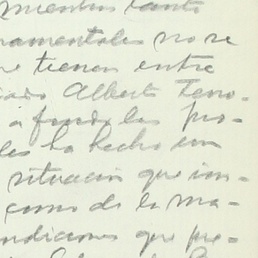 mientras tanto
namentales no se
que tienen entre
Alberto
a fondo las pro-
les ha hecho un
situación que con-
como de la ma-
ndiciones que pre-